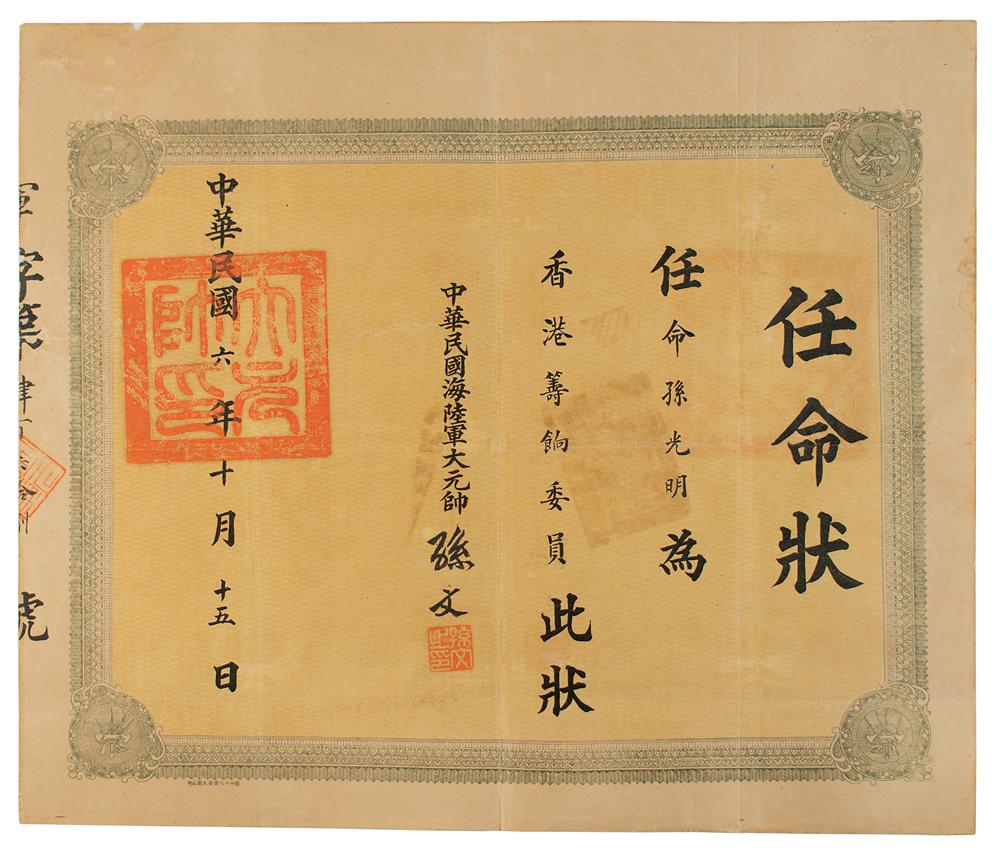 任命狀
任命孫光明為
香港籌餉委員此狀
中華民國海陸軍大元帥孫文
孫文之印
中華民國六年十月十五日
大元帥印
軍字第肆
號